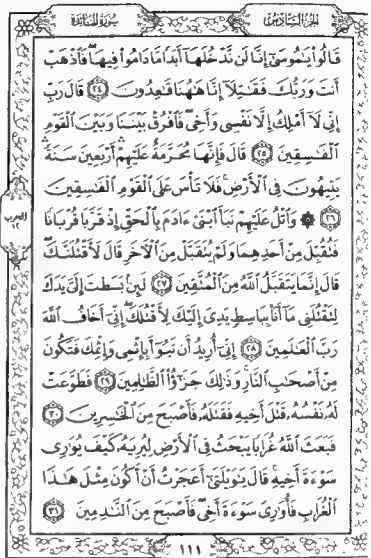 الجزء السادس
سورة المائدة
قَالُوا۟ يَـٰمُوسَىٰٓ إِنَّا لَن نَّدْخُلَهَآ أَبَدًا مَّا دَامُوا۟ فِيهَا ۖ فَٱذْهَبْ
أَنتَ وَرَبُّكَ فَقَـٰتِلَآ إِنَّا هَـٰهُنَا قَـٰعِدُونَ ٢٤ قَالَ رَبِّ
إِنِّى لَآ أَمْلِكُ إِلَّا نَفْسِى وَأَخِى ۖ فَٱفْرُقْ بَيْنَنَا وَبَيْنَ ٱلْقَوْمِ
ٱلْفَـٰسِقِينَ ٢٥ قَالَ فَإِنَّهَا مُحَرَّمَةٌ عَلَيْهِمْ ۛ أَرْبَعِينَ سَنَةً ۛ
يَتِيهُونَ فِى ٱلْأَرْضِ ۚ فَلَا تَأْسَ عَلَى ٱلْقَوْمِ ٱلْفَـٰسِقِينَ
٢٦ ۞ وَٱتْلُ عَلَيْهِمْ نَبَأَ ٱبْنَىْ ءَادَمَ بِٱلْحَقِّ إِذْ قَرَّبَا قُرْبَانًا
فَتُقُبِّلَ مِنْ أَحَدِهِمَا وَلَمْ يُتَقَبَّلْ مِنَ ٱلْـَٔاخَرِ قَالَ لَأَقْتُلَنَّكَ ۖ
قَالَ إِنَّمَا يَتَقَبَّلُ ٱللَّهُ مِنَ ٱلْمُتَّقِينَ ٢٧ لَئِنۢ بَسَطتَ إِلَىَّ يَدَكَ
لِتَقْتُلَنِى مَآ أَنَا۠ بِبَاسِطٍ يَدِىَ إِلَيْكَ لِأَقْتُلَكَ ۖ إِنِّىٓ أَخَافُ ٱللَّهَ
رَبَّ ٱلْعَـٰلَمِينَ ٢٨ إِنِّىٓ أُرِيدُ أَن تَبُوٓأَ بِإِثْمِى وَإِثْمِكَ فَتَكُونَ
مِنْ أَصْحَـٰبِ ٱلنَّارِ ۚ وَذَٰلِكَ جَزَٰٓؤُا۟ ٱلظَّـٰلِمِينَ ٢٩ فَطَوَّعَتْ
لَهُۥ نَفْسُهُۥ قَتْلَ أَخِيهِ فَقَتَلَهُۥ فَأَصْبَحَ مِنَ ٱلْخَـٰسِرِينَ ٣٠
فَبَعَثَ ٱللَّهُ غُرَابًا يَبْحَثُ فِى ٱلْأَرْضِ لِيُرِيَهُۥ كَيْفَ يُوَٰرِى
سَوْءَةَ أَخِيهِ ۚ قَالَ يَـٰوَيْلَتَىٰٓ أَعَجَزْتُ أَنْ أَكُونَ مِثْلَ هَـٰذَا
ٱلْغُرَابِ فَأُوَٰرِىَ سَوْءَةَ أَخِى ۖ فَأَصْبَحَ مِنَ ٱلنَّـٰدِمِينَ ٣١
الحزب
١٢
١١١